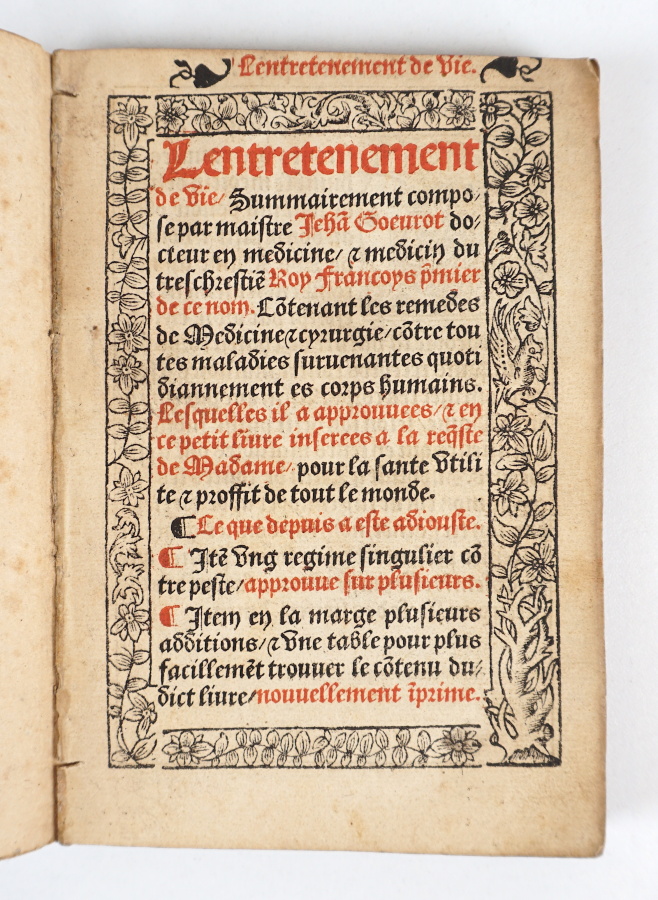 Lentretenement de Vie.
Lentretenement
de Vie/ Summairement compo/
se par maistre Jehã Goeurot do/
cteur en medicine/ ⁊ medicin du
treschrestiẽ Roy Francoys p̃mier
de ce nom. Cõtenant les remedes
de Medicine⁊cyrurgie/cõtre tou
tes maladies suruenantes quoti
diannement es corps humains.
Lesquelles il a approuuees/⁊ en
ce petit liure inserees a la req̃ste
de Madame/ pour la sante Vtili
te ⁊ proffit de tout le monde.
¶ Le que depuis a este adiouste.
¶ Itẽ Vng regime singulier cõ
tre peste/approuue sur plusieurs.
¶ Item en la marge plusieurs
additions/⁊ Vne table pour plus
facillemẽt trouuer le cõtenu du/
dict liure/nouuellement ĩprime.